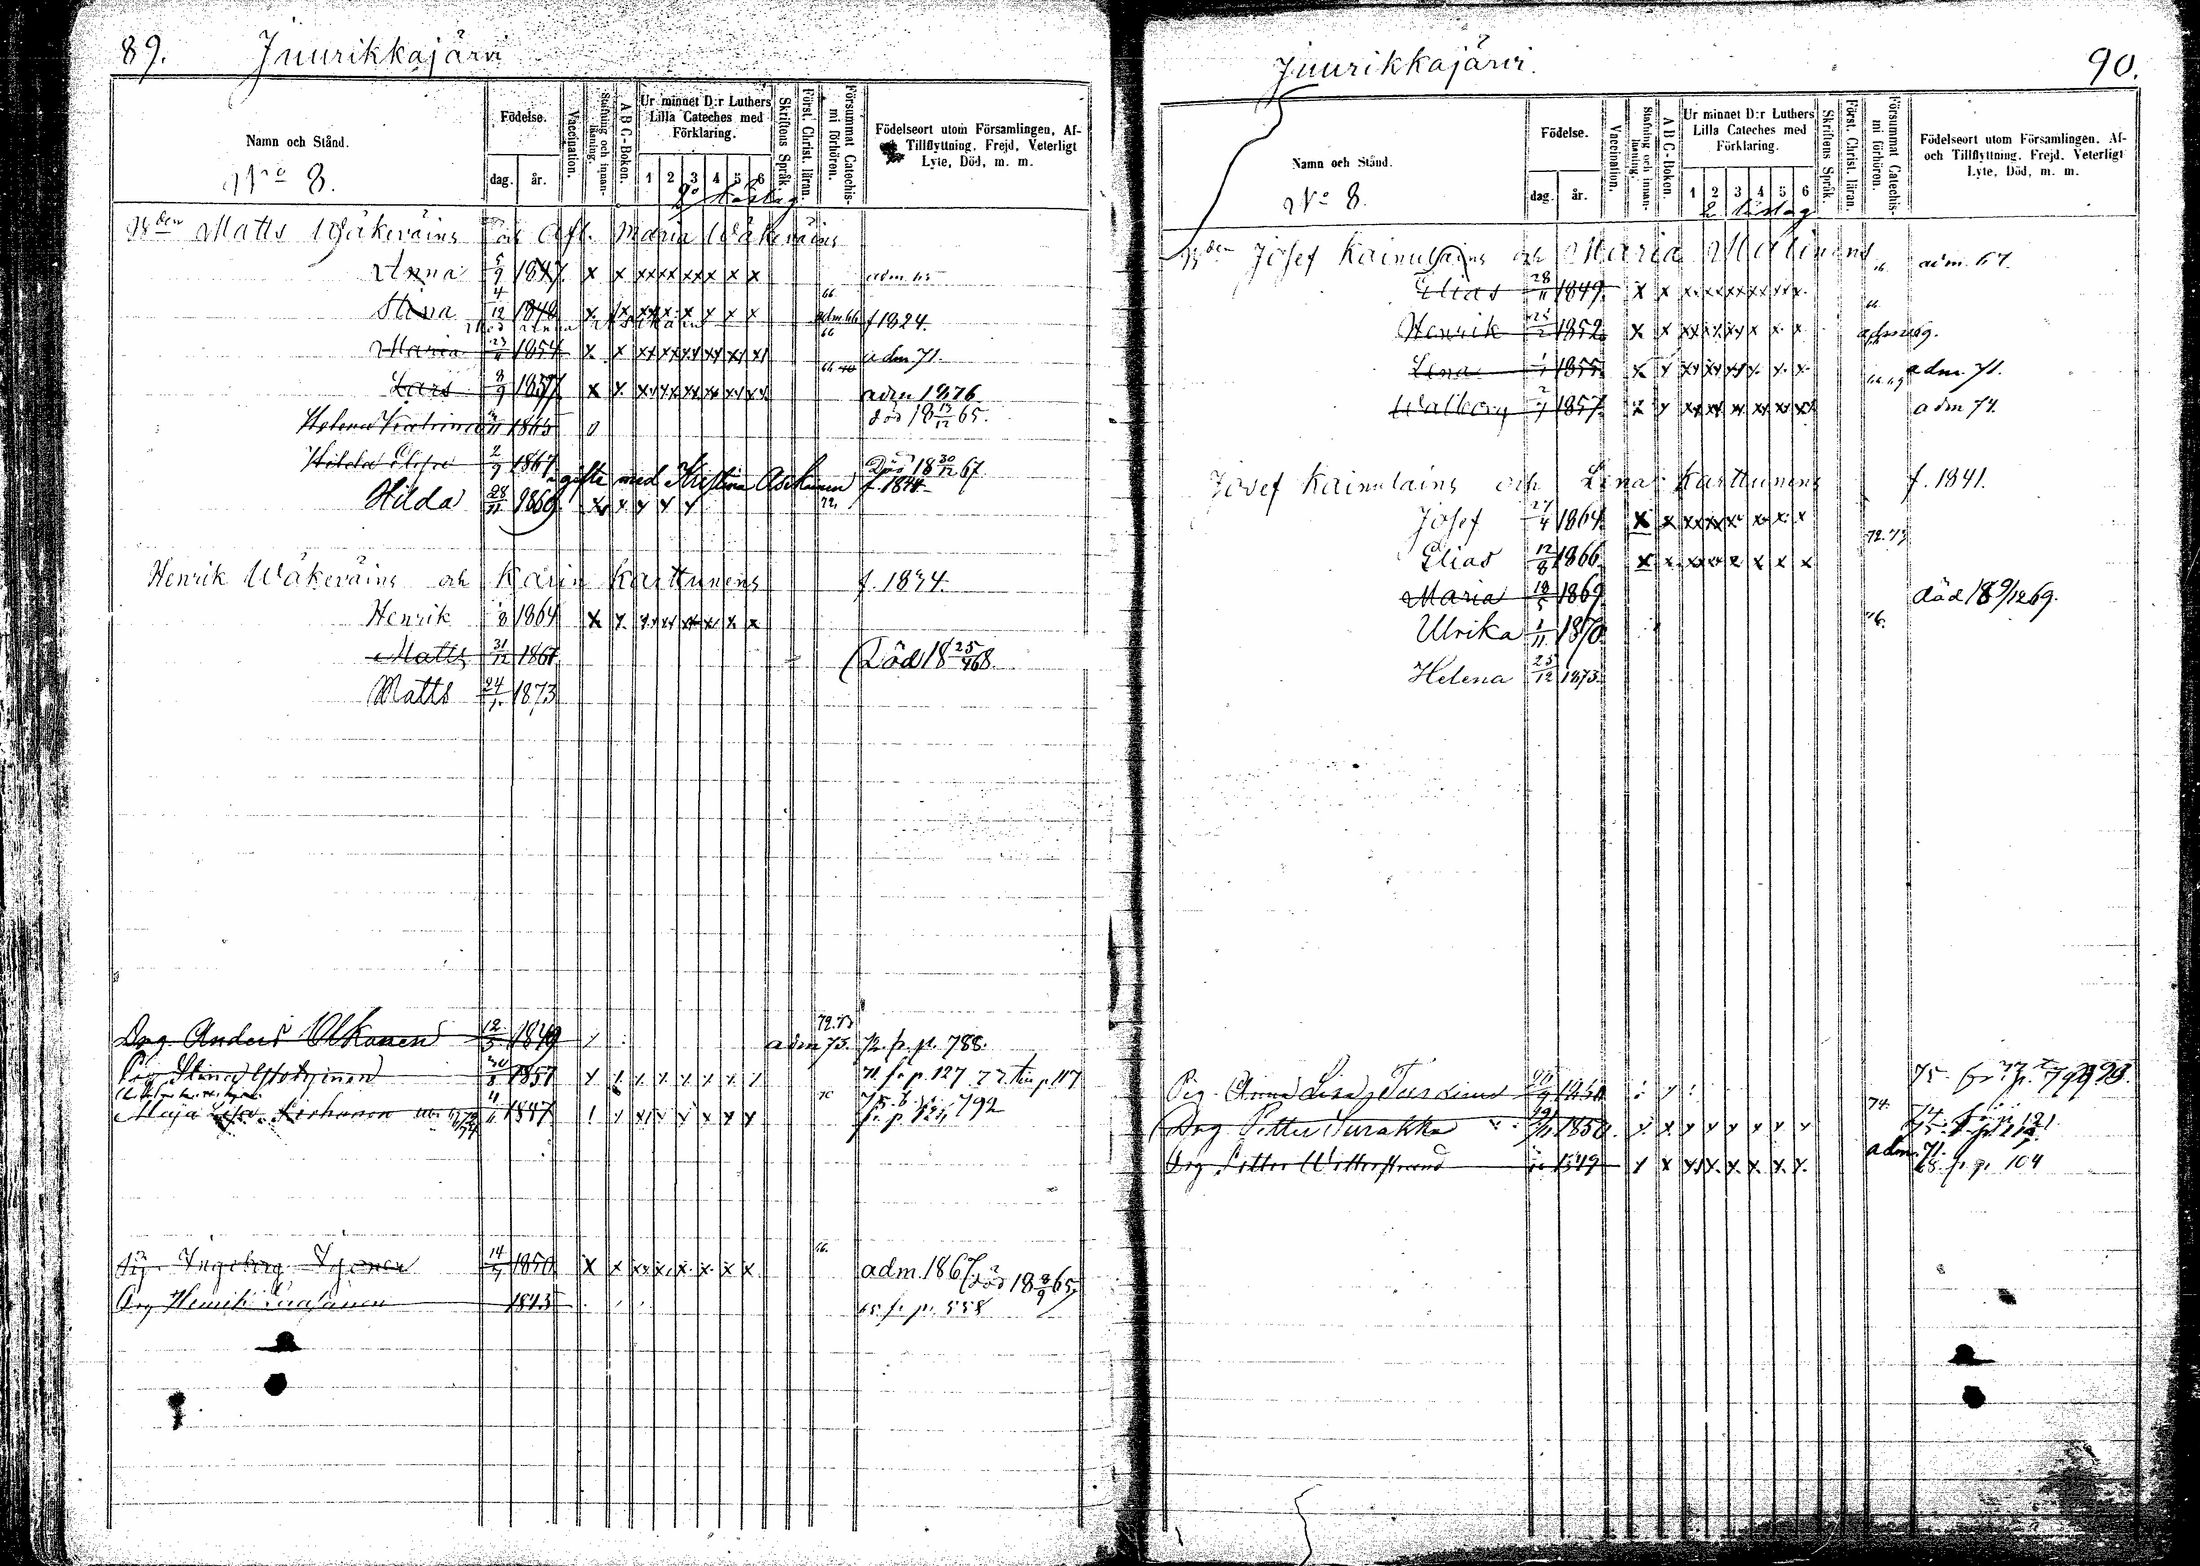 89. Juurikkajärvi
Namn och Stånd.
No 8.
Födelse.
dag. år.
Vaccination.
Stafning och innanläsning.
A B C-Boken.
Ur minnet D:r Luthers Lilla Cateches med Förklaring.
1 2 3 4 5 6
Skriftens Språk.
Först. Christ. läran.
Försummat Catechismi förhören.
Födelseort utom Församlingen, Af- och Tillflyttning. Frejd, Veterligt Lyte, Död, m. m.
Bden Matts Wäkeväins och Afl. Maria Wäkeväins
Anna 5/9 1847. x x xx xx xx x x x adm 65
Stina 4/12 1848 x x xx x x x x x 66 adm 66 f 1824.
Maria 23/4 1854 x x xx xx xx xx xx xx 66 adm 71.
Lars 8/9 1857 x x xx xx xx xx xx xx adm 1876
Helena 1865 död 18 13/12 65.
Hilda 2/9 1867 Död 18 30/12 67.
gifte med Kristina f. 1844
Hilda 28/11 1869. x x x x x 72.
Henrik Wäkeväins och Karin Karttunens f. 1834.
Henrik 1/8 1864 x x xx xx xx xx x x
Matts 31/12 1867 Död 18 25/4 68.
Matts 24/1 1873
Drg Anders 12/3 1849 72.73 adm 75. 72. f. p. 788.
Pig Stina 30/8 1857 x x x x x x x x 71 f. p. 127. 77 till p 117
Maja Lisa 4/11 1847 x x xx x x x x 792
Pig. Ingeborg 14/4 1850 x x xx x x x x x 66. adm. 1867
Drg Henrik 1843 död 18 8/9 65.
65. f. p. 558
Juurikkajärvi. 90.
Namn och Stånd.
No 8.
Födelse.
dag. år.
Vaccination.
Stafning och innanläsning.
A B C-Boken.
Ur minnet D:r Luthers Lilla Cateches med Förklaring.
1 2 3 4 5 6
Skriftens Språk.
Först. Christ. läran.
Försummat Catechismi förhören.
Födelseort utom Församlingen. Af- och Tillflyttning. Frejd. Veterligt Lyte, Död, m. m.
Bden Josef Kainulains och Maria Malinens
Elias 28/11 1849. x x xx xx xx xx xx x adm. 67.
Henrik 1852 x x xx xx xx x x x adm 69.
Lena 1/1 1855. x x xx xx xx x x x adm. 71.
Walborg 2/7 1857. x x xx xx xx xx xx xx adm 74.
Josef Kainulains och Lena Karttunens f. 1841.
Josef 27/4 1864. x x xx xx x x x x
Elias 12/8 1866. x x xx xx x x x x 72.73
Maria 18/5 1869. död 18 9/12 69.
Ulrika 1/11 1870. 76.
Helena 25/12 1873.
Pig. Anna Lisa 75
Drg Petter Turakka 1850. x x x x x x x x 74.
Drg Petter Wetterstrand 1849 x x xx x x x x x adm. 71. 68. f. p. 104